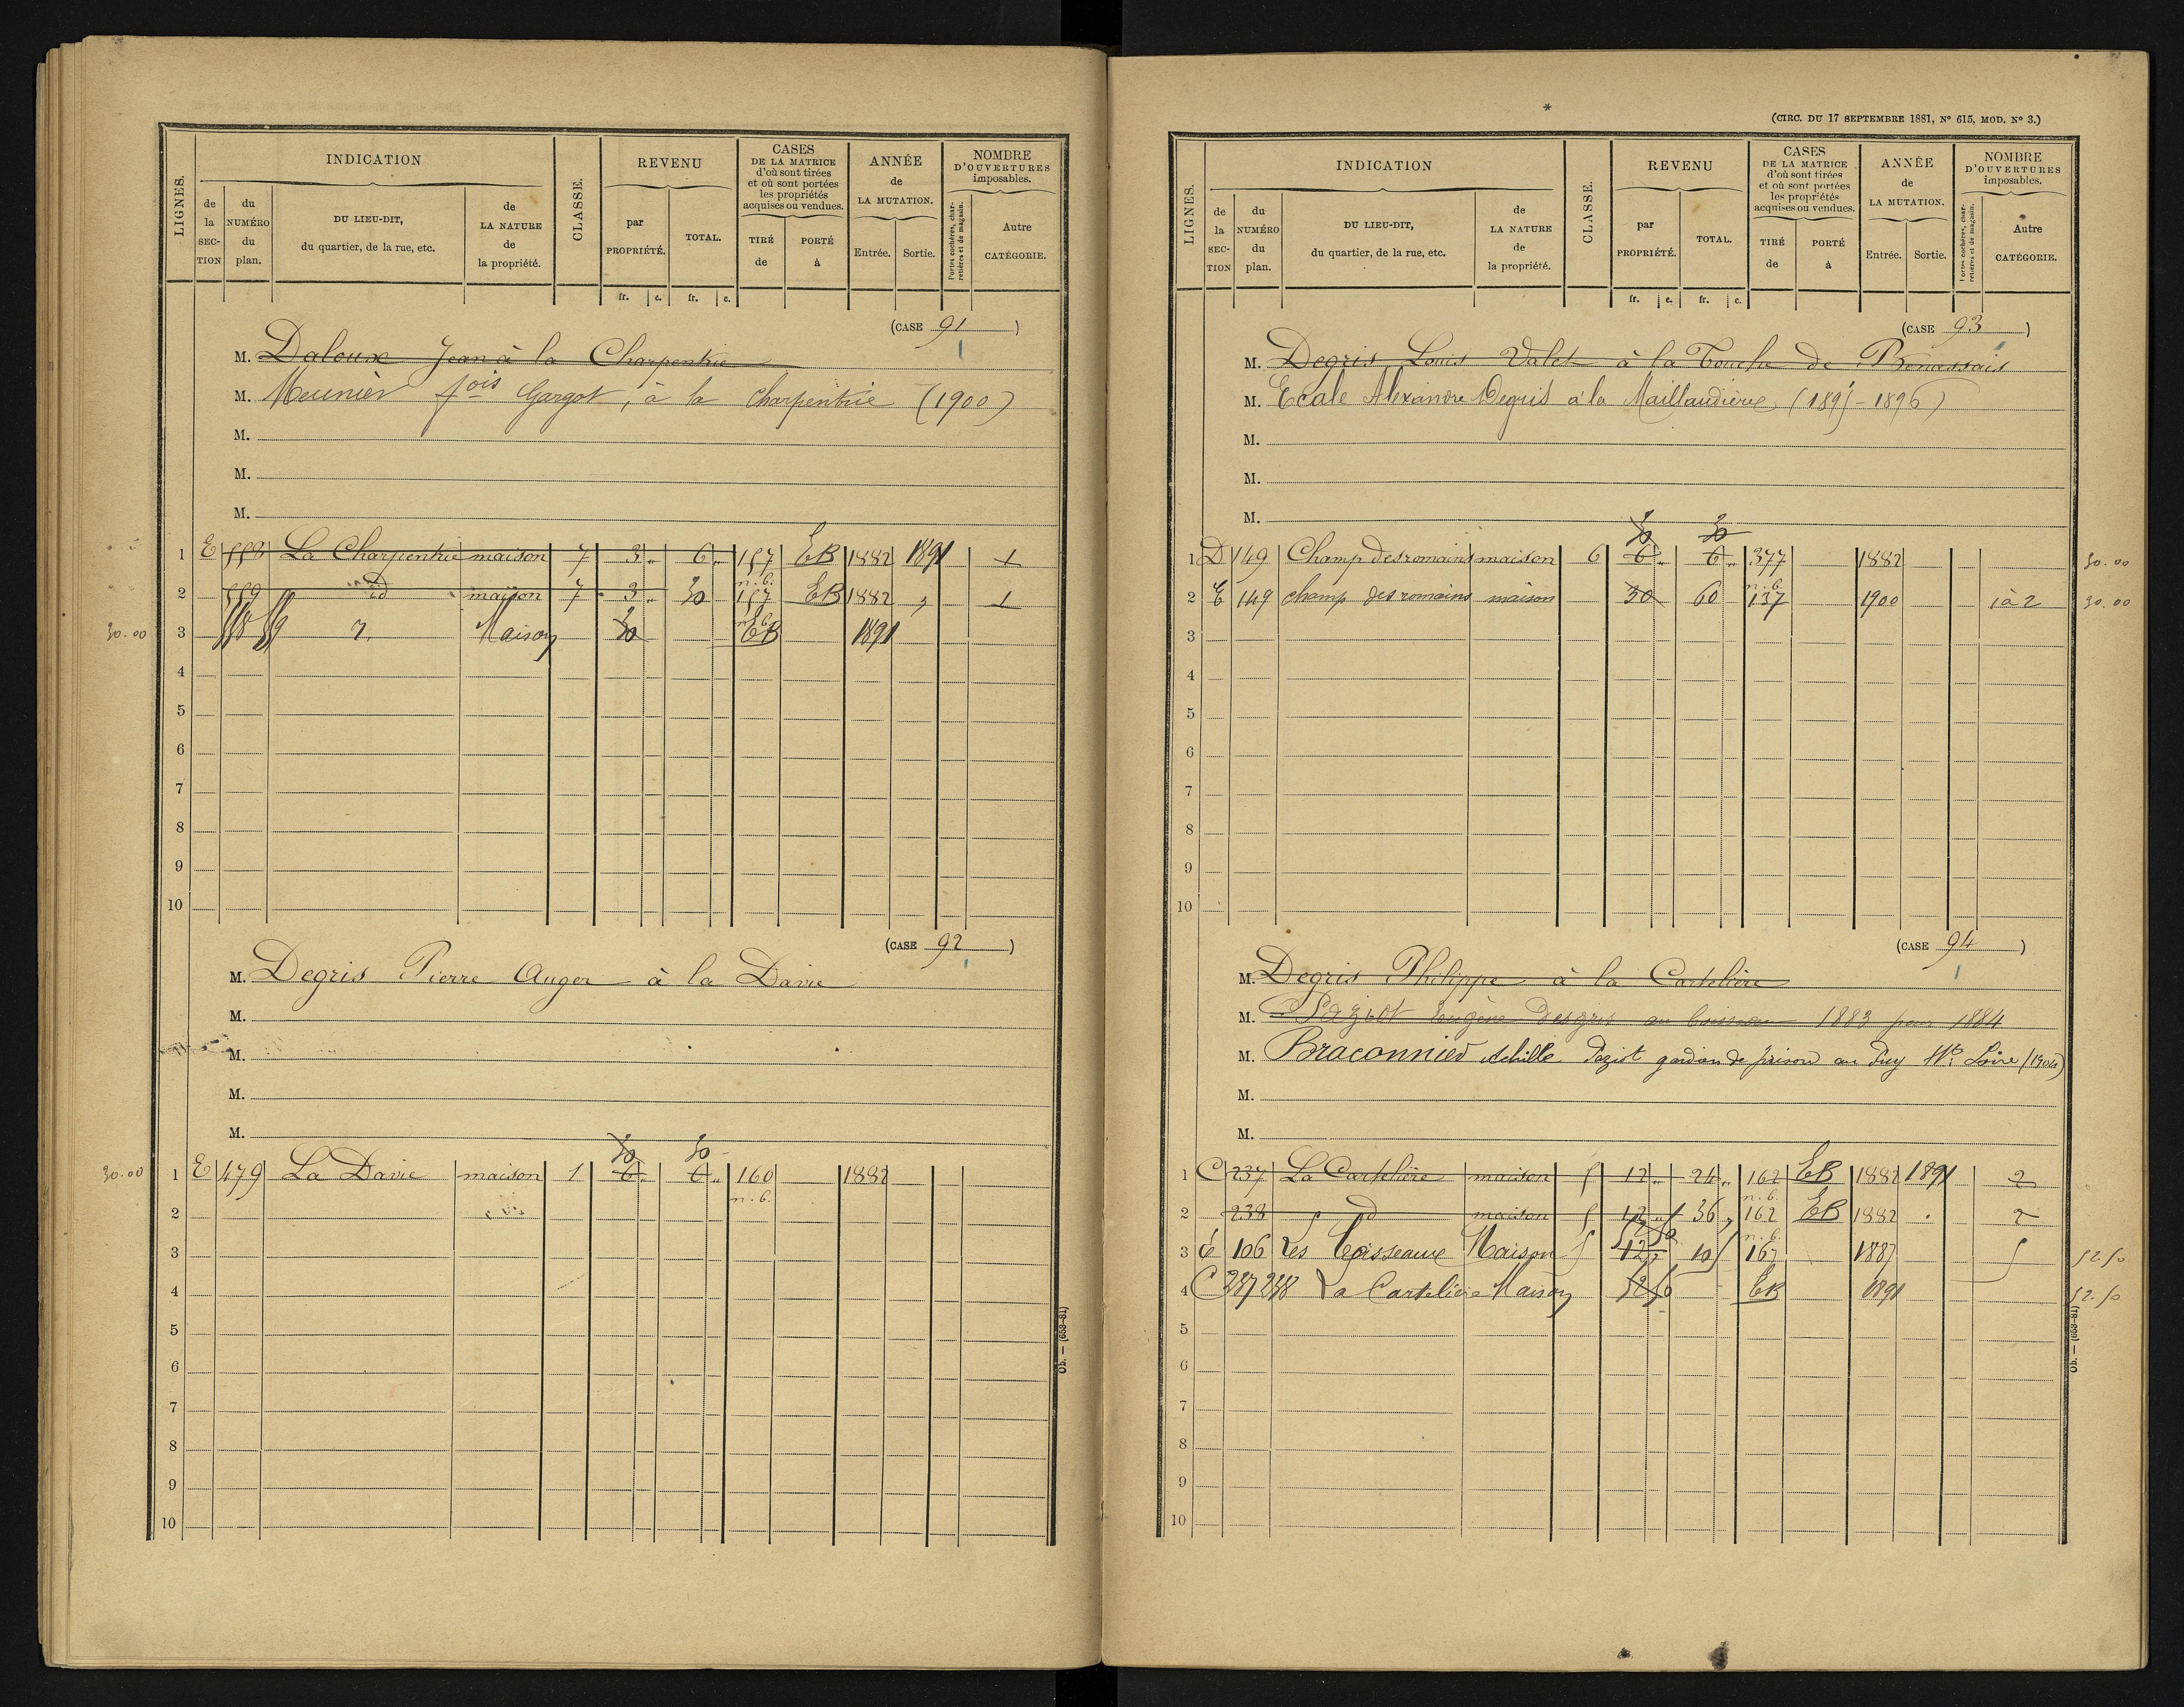 LIGNES. INDICATION CLASSE. REVENU CASES DE LA MATRICE d'où sont tirées et où sont portées les propriétés acquises ou vendues. ANNÉE de LA MUTATION. NOMBRE D'OUVERTURES imposables.
de la SECTION du NUMÉRO du plan. DU LIEU-DIT, du quartier, de la rue, etc. de LA NATURE de la propriété. par PROPRIÉTÉ. TOTAL. TIRÉ de PORTÉ à Entrée. Sortie. Portes cochères, charretières et de magasin. Autre CATÉGORIE.
fr. c. fr. c.
(CASE 91)
M. Daloux Jean à la Charpentrie
M. Meunier fois Gargot, à la Charpentrie (1900)
M.
M.
M.
1 E 558 La Charpentrie maison 7 3 " 6 " 157 EB 1882 1891 1
n. b.
2 559 id maison 7 3 " 30 157 EB 1882 " 1
n. b.
30.00 3 558 559 Maison 30 EB 1891
4
5
6
7
8
9
10
(CASE 92)
M. Degris Pierre Auger à la Davie
M.
M.
M.
M.
30 30
30.00 1 E 479 La Davie maison 1 6 " 6 " 160 1882
n. b.
2
3
4
5
6
7
8
9
10
Ob. — (653-81)
*
(CIRC. DU 17 SEPTEMBRE 1881, N° 615, MOD. N° 3.)
LIGNES. INDICATION CLASSE. REVENU CASES DE LA MATRICE d'où sont tirées et où sont portées les propriétés acquises ou vendues. ANNÉE de LA MUTATION. NOMBRE D'OUVERTURES imposables.
de la SECTION du NUMÉRO du plan. DU LIEU-DIT, du quartier, de la rue, etc. de LA NATURE de la propriété. par PROPRIÉTÉ. TOTAL. TIRÉ de PORTÉ à Entrée. Sortie. Portes cochères, charretières et de magasin. Autre CATÉGORIE.
fr. c. fr. c.
(CASE 93)
M. Degris Louis Valet à la Touche de Benassais
M. Ecale Alexandre Degris à la Maillaudière (1895-1896)
M.
M.
M.
30 30
1 D 149 Champ des romains maison 6 6 " 6 " 377 1882 30.00
n. b.
2 E 149 champ des romains maison 30 60 137 1900 1 à 2 30.00
3
4
5
6
7
8
9
10
(CASE 94)
M. Degris Philippe à la Cartelière
M. Paziot Eugène Desgris au 1883 pour 1884
M. Braconnier Achille Paziot gardien de prison au Puy Hte Loire (1904)
M.
M.
1 C 237 La Cartelière maison 5 12 " 24 " 162 EB 1882 1891 2
n. b.
2 238 d maison 5 12 " 36 " 162 EB 1882 2
52 50 n. b.
3 106 Les Maison 5 12 105 167 1887 5 52.50
4 C 237 238 La Cartelière Maison 52 50 EB 1891 52.50
5
6
7
8
9
10
Ob. — (653-81)